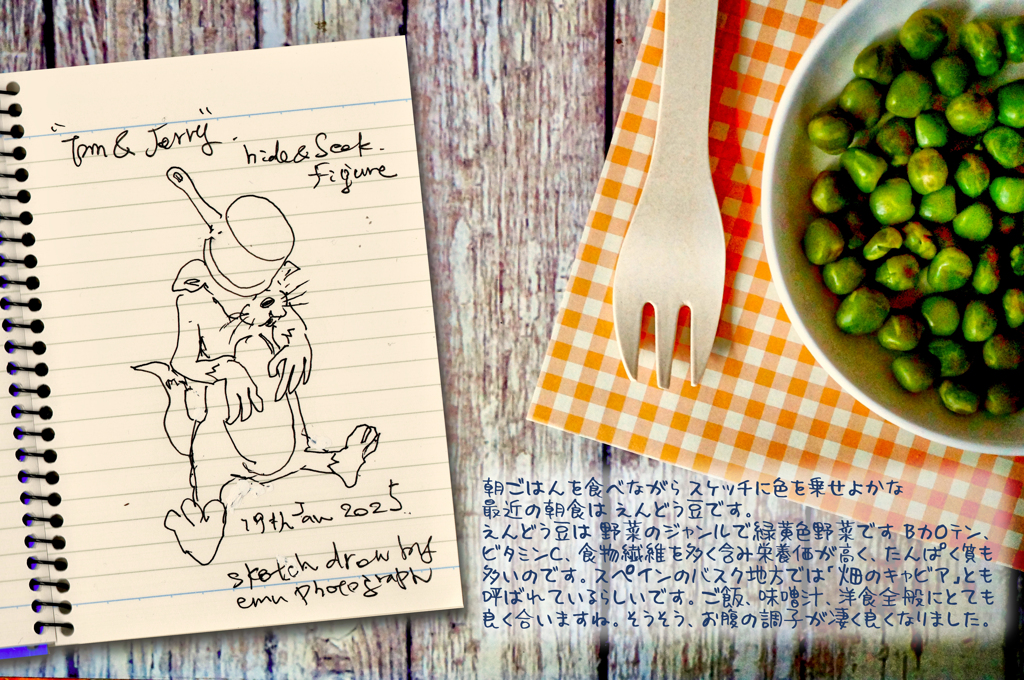 "Tom & Jerry".
hide & Seek.
figure
19th Jan 2025.
sketch draw by
emu photograph
朝ごはんを食べながら スケッチに色を乗せよかな
最近の朝食は えんどう豆です。
えんどう豆は 野菜のジャンルで緑黄色野菜です Bカロテン、
ビタミンC、食物繊維を多く含み栄養価が高く、たんぱく質も
多いのです。スペインのバスク地方では「畑のキャビア」とも
呼ばれているらしいです。ご飯、味噌汁、洋食全般にとても
良く合いますね。そうそう、お腹の調子が凄く良くなりました。